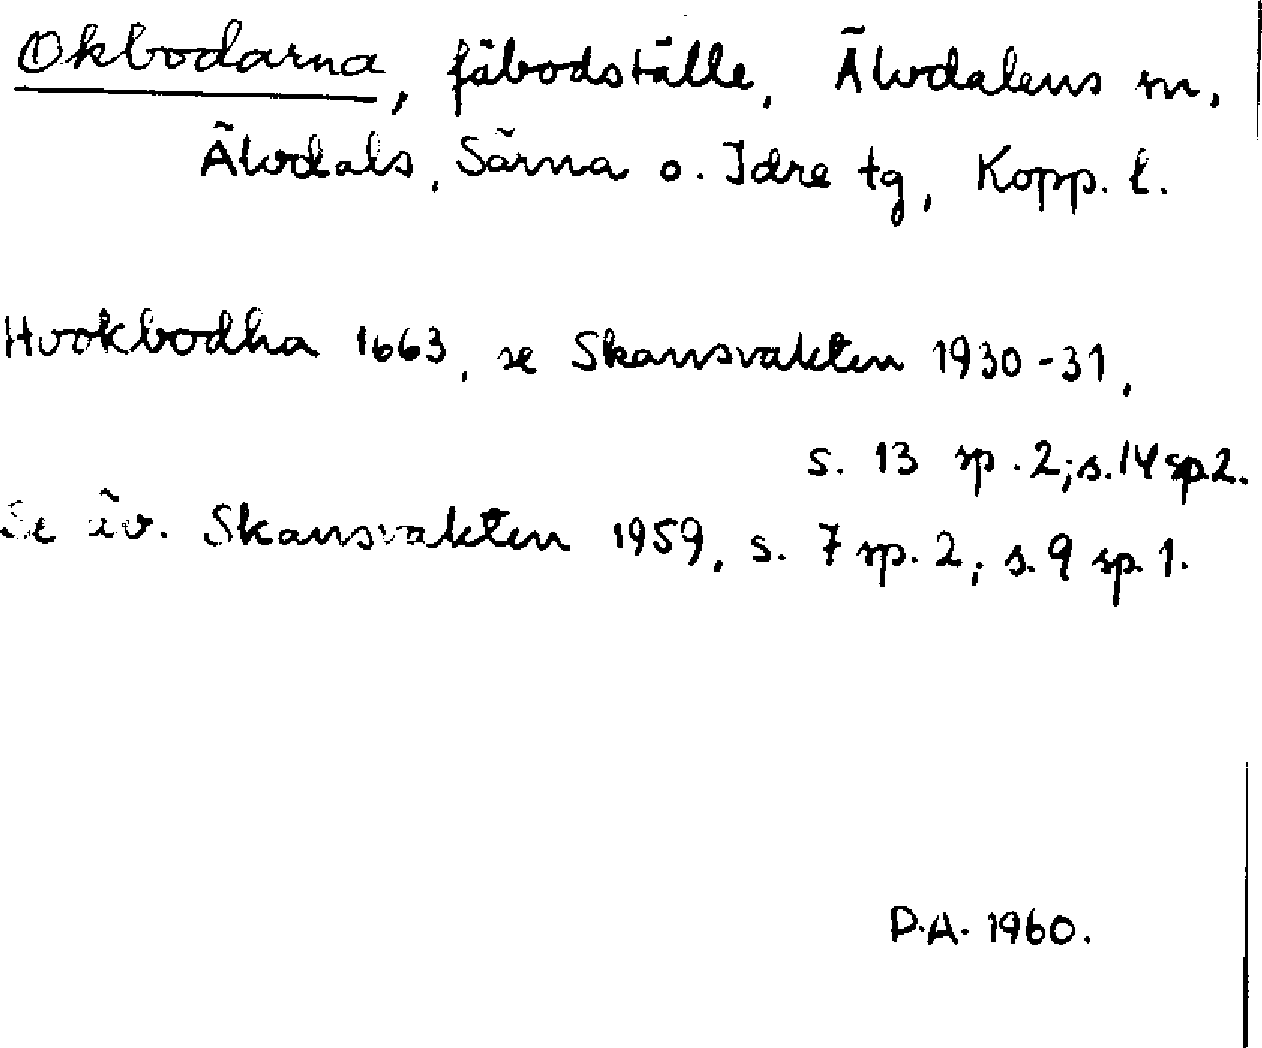 Okbodarna, fäbodställe, Älvdalens sn,
Älvdals, Särna o. Idre tg, Kopp. l.
Hvokbodha 1663, se Skansvakten 1930-31,
s. 13 sp. 2; s. 14 sp 2.
Se äv. Skansvakten 1959, s. 7 sp. 2; s. 9 sp. 1.
D.A. 1960.